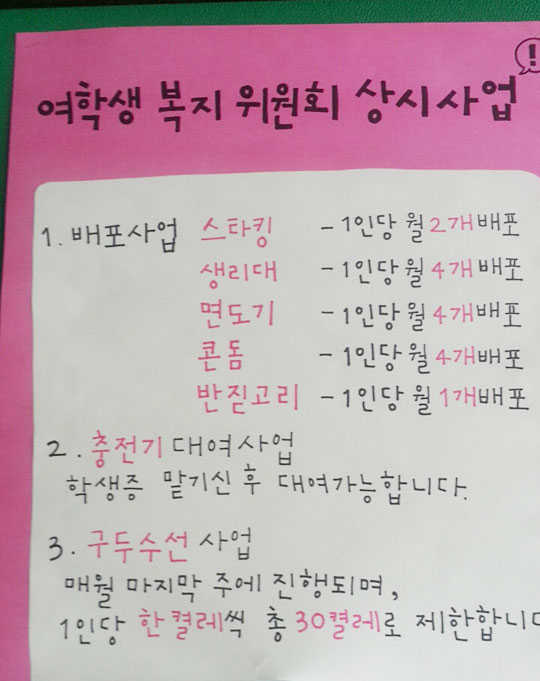 !
여학생 복지 위원회 상시사업
1. 배포사업 스타킹 - 1인당 월 2개 배포
생리대 - 1인당 월 4개 배포
면도기 - 1인당 월 4개 배포
콘돔 - 1인당 월 4개 배포
반짇고리 - 1인당 월 1개 배포
2. 충전기 대여사업
학생증 맡기신 후 대여가능합니다.
3. 구두수선 사업
매월 마지막 주에 진행되며,
1인당 한켤레씩 총 30켤레로 제한합니다